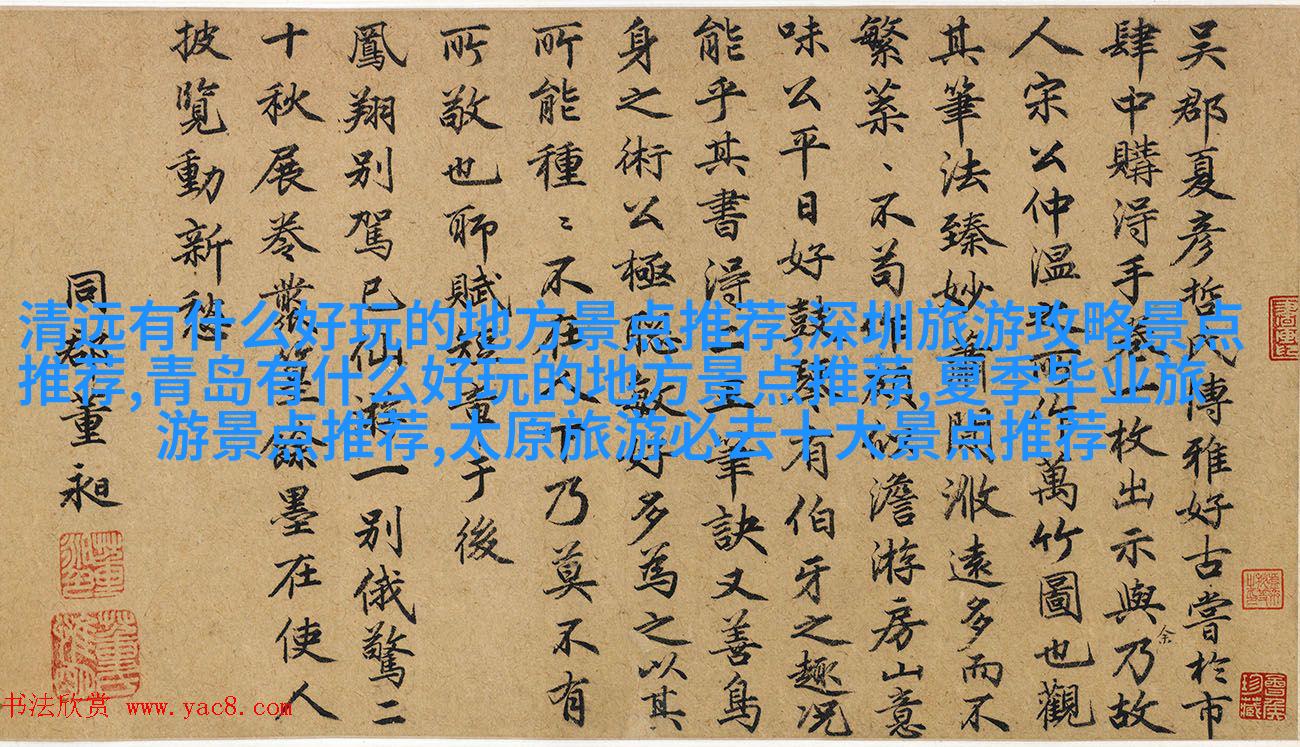 吴郡夏彦哲氏傳雅好古嘗於市
肆中購淂手卷一枚出示與余乃故
人宋公仲溫
萬竹圖也觀
其筆法臻妙蕭閒
遠多而不
繁
不苟
澹游房山意
味公平日好鼓琴有伯牙之趣况
能乎其書淂二王筆訣又善鳥
身之術公極聡敏好多為之以其
所能種〻不在人下乃莫不有
所敬也聊賦短章于後
鳳翔别駕已仙游一别俄驚二
十秋展卷
餘墨在使人
披覽動新愁
同郡董昶
清远有什么好玩的地方景点推荐,深圳旅游攻略景点
推荐,青岛有什么好玩的地方景点推荐,夏季毕业旅
游景点推荐,太原旅游必去十大景点推荐
书法欣赏 www.yac8.com